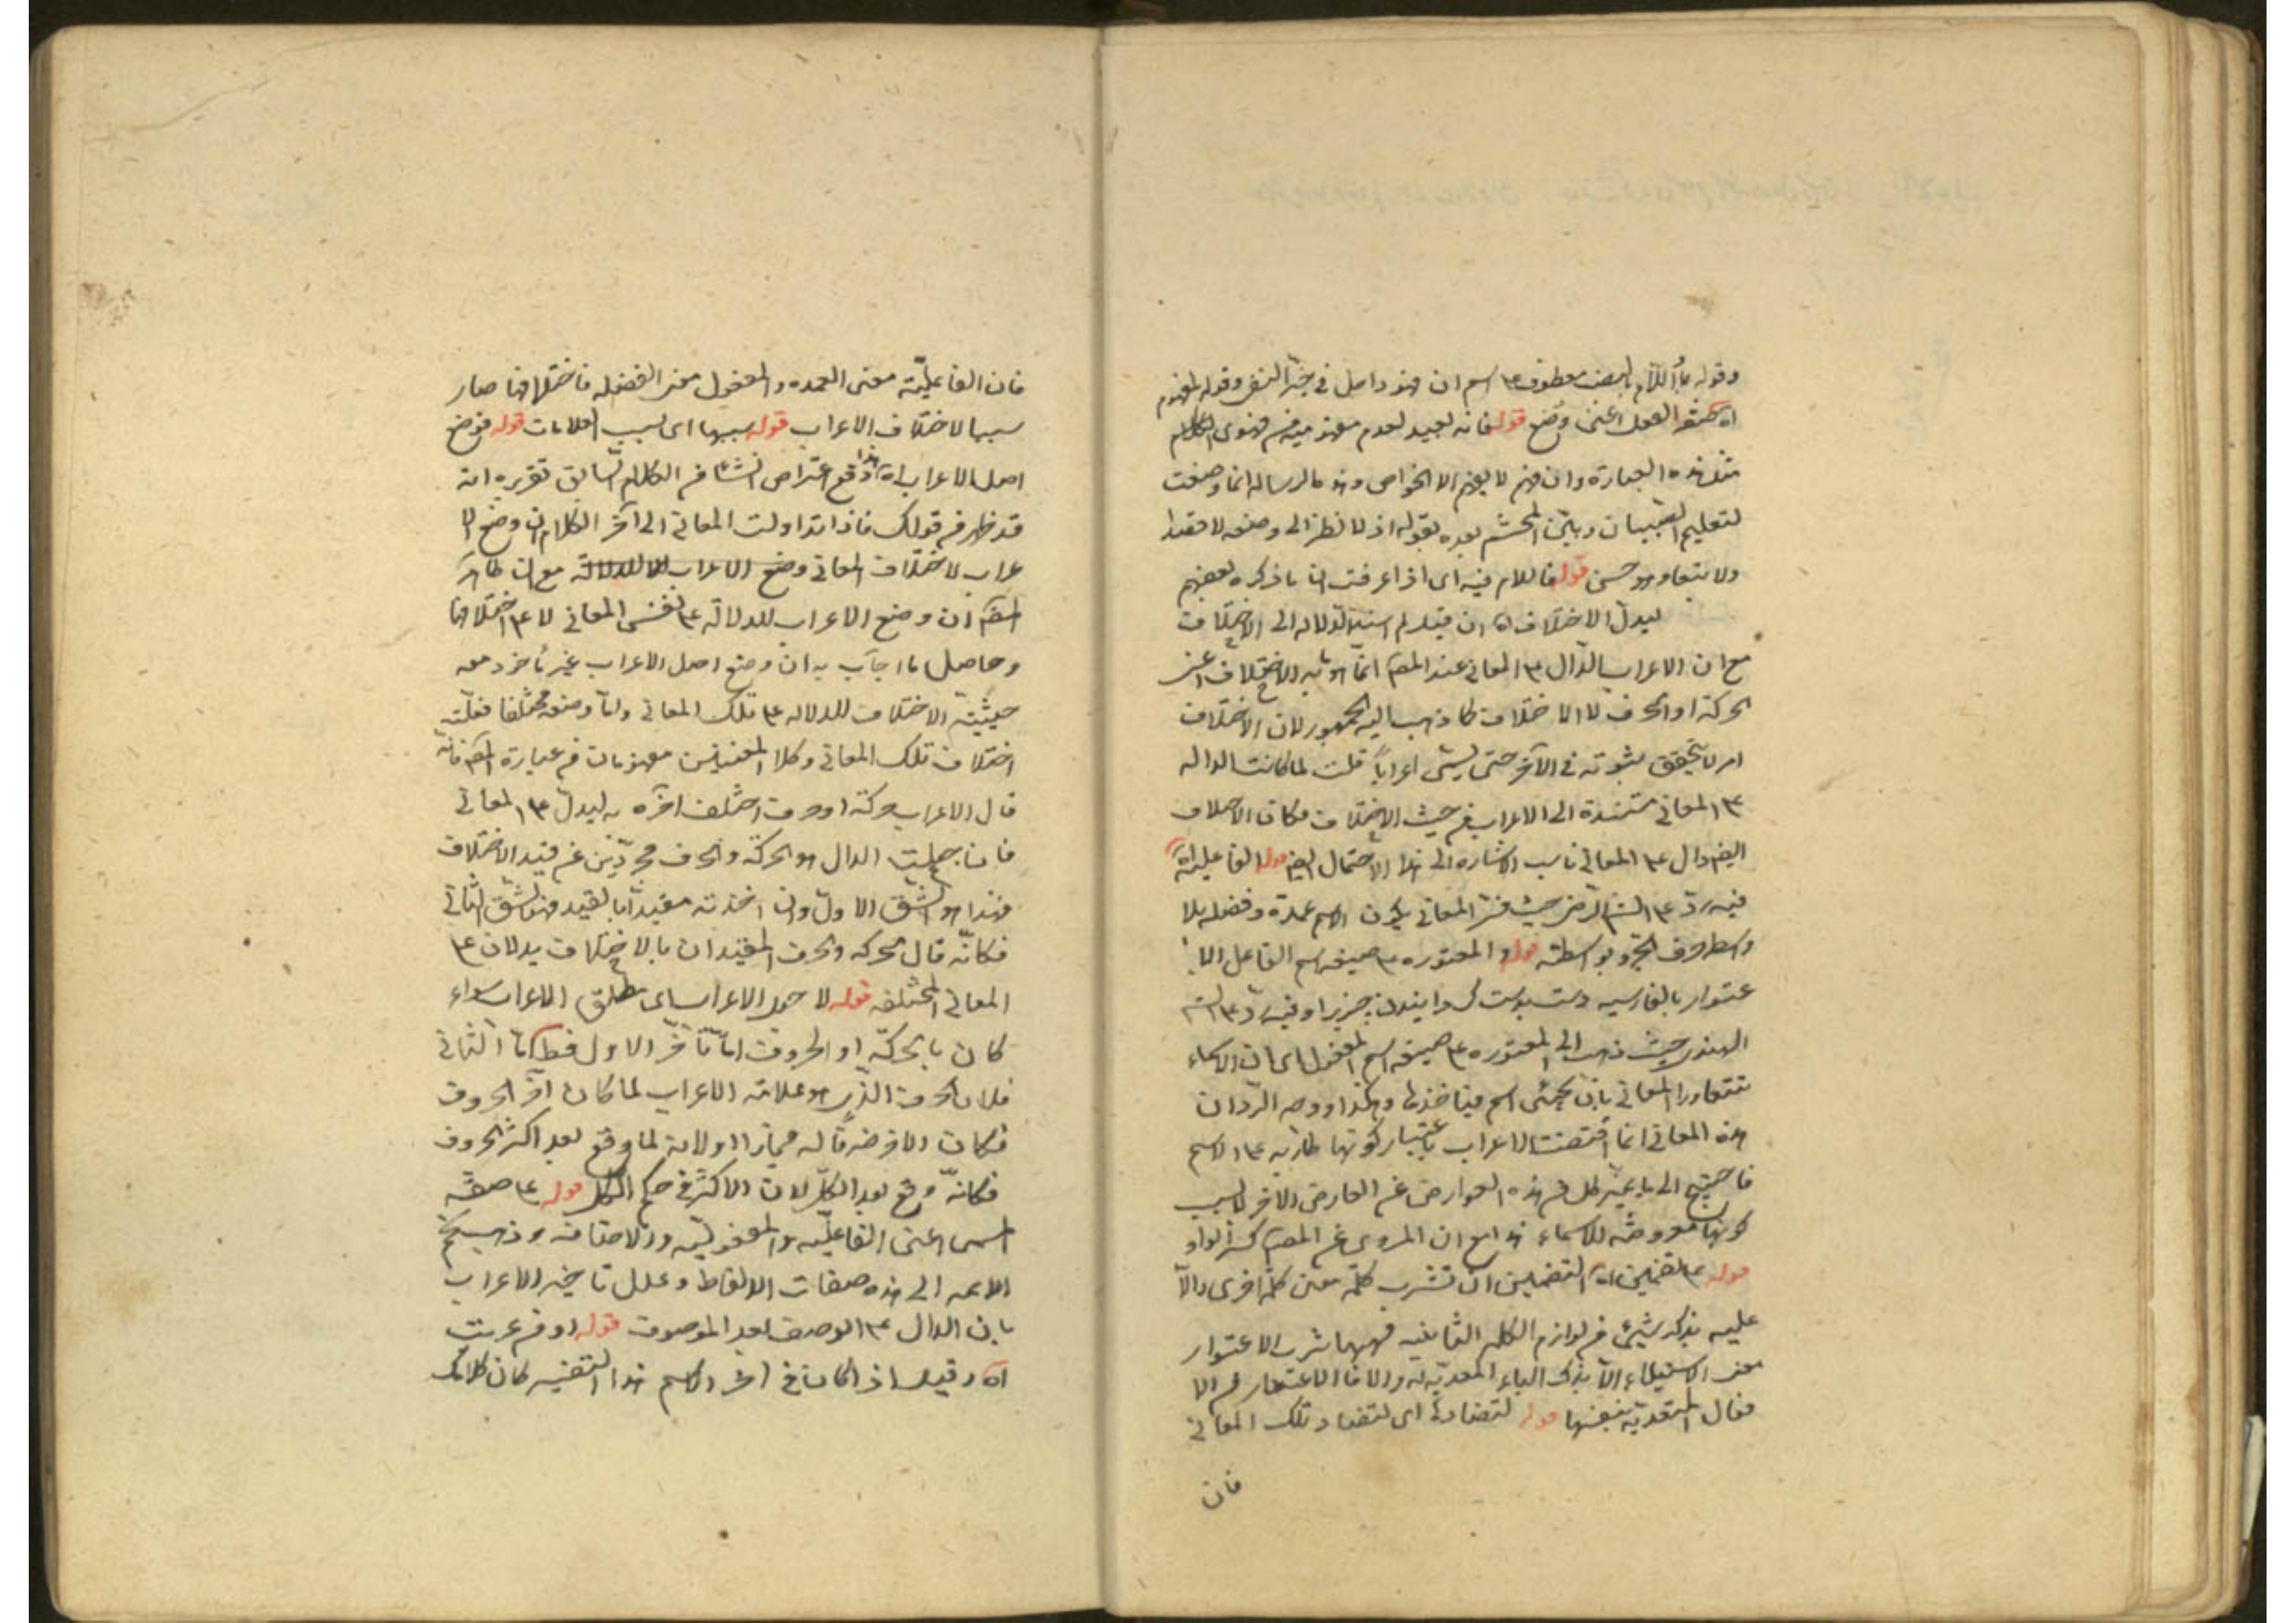 وقوله بما اللام بالبعض معطوف ع‍ اسم ان فهو داخل في حيز النفي وقوله المفهوم
فانه بعيد لعدم
مثل هذه العبارة وان فهم لا يفهم الا الخواص وهذه الرسالة انما وضعت
لتعليم الصبيان وبيّن المحشى بعده بقوله اذ لا نظر الى وضعه لاحقا
ولا بتعا وهو حسن قوله فاللام فيه اى اذا عرفت ان ما ذكره بعضهم
ليدل الاختلاف اه ان قيل لم اسند الدلالة الى الاختلاف
مع ان الاعراب الدال ع‍ المعانى عند المص انما هو ما به الاختلاف اعنى
الحركة او الحرف لا الاختلاف كما ذهب اليه الجمهور لان الاختلاف
امر لا يتحقق ثبوته فى الآخر حتى يسمى اعراباً قلت لما كانت الدالة
ع‍ المعانى مستندة الى الاعراب من حيث الاختلاف فكان الاختلاف
ايضا دال ع‍ المعانى ناسب الاشارة الى هذا الاحتمال ايضا قوله الفاعلية اه
فيه رد ع‍ الشيخ الرضى حيث فسر المعانى بكون الاسم عمدة وفضلة بلا
واسطة حرف الجر وبواسطته قوله المعتورة ع‍ صيغة اسم الفاعل الا
عتوار بالفارسية دست بدست كردانيدن چيزيرا وفيه رد ع‍
الهندى حيث ذهب الى المعتورة ع‍ صيغة اسم المفعول اى ان الاسماء
تتعاور المعانى بان يجئ اسم فيأخذها وهكذا ووجه الرد ان
هذه المعانى انما اقتضت الاعراب باعتبار كونها طارية ع‍ الاسم
فاحتيج الى ما يميز كل من هذه العوارض عن العارض الآخر لا بسبب
كونها معروضة للاسماء هذا مع ان المروى عن المص كسر الواو
قوله ع‍ تضمين اه التضمين ان تشرب كلمة معنى كلمة اخرى دالا
عليه بذكر شيئ من لوازم الكلمة الثانية فههنا شرب الاعتوار
معنى الاستيلاء لا بذكر الباء المعدية له والا فالاعتوار من الا
فعال المتعدية بنفسها قوله لتضادها اى لتضاد تلك المعانى
فان
فان الفاعلية معنى العمدة والمفعول معنى الفضلة فاختلافها صار
سببا لاختلاف الاعراب قوله سببها اى بسبب العلامات قوله فوضع
اصل الاعراب اه هذا دفع اعتراض نشأ من الكلام السابق تقريره انه
قد ظهر من قولك فاذا تداولت المعانى الى آخر الكلام ان وضع الا
عراب لاختلاف المعانى وضع الاعراب للدلالة مع ان ظاهر
المص ان وضع الاعراب للدلالة ع‍ نفس المعانى لا ع‍ اختلافها
وحاصل ما اجاب به ان وضع اصل الاعراب غير مأخوذ معه
حيثية الاختلاف للدلالة ع‍ تلك المعانى واما وضعه مختلفا فعلته
اختلاف تلك المعانى وكلا المعنيين مفهومان من عبارة المص فانه
قال الاعراب حركة او حرف اختلف آخره به ليدل ع‍ المعانى
فان جعلت الدال هو الحركة والحرف مجردين عن قيد الاختلاف
فهذا هو الشق الاول وان اخذته مقيدا بالقيد فهو الشق الثانى
فكانّه قال الحركة والحرف المقيدان بالاختلاف يدلان ع‍
المعانى المختلفة قوله لا جعل الاعراب اى مطلق الاعراب سواء
كان بالحركة او الحروف اما تأخر الاول فظ واما الثانى
فلان الحرف الذى هو علامة الاعراب لما كان آخر الحروف
فكانت الآخرية له مجازا اولانه لما وقع بعد اكثر الحروف
فكانّه وقع بعد الكل لان الاكثر فى حكم الكل قوله ع‍ صفة
المسمى اعنى الفاعلية والمفعولية والاضافة وذهب نجم
الائمه الى هذه صفات الالفاظ وعلل تاخير الاعراب
بان الدال ع‍ الوصف بعد الموصوف قوله او من عربت
اه وقيل اذا كان فى آخر الاسم هذا التغيير كان كلامك